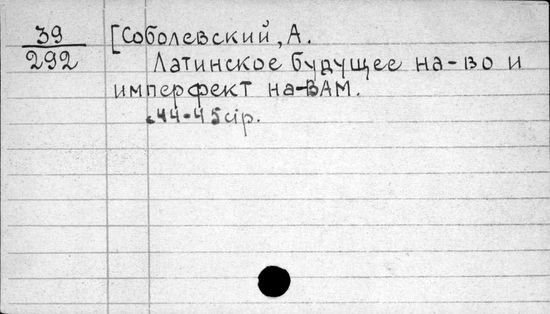 39
292
[Соболевский, А.
Латинское будущее на-во и
имперфект на-ВАМ.
44-45 стр.